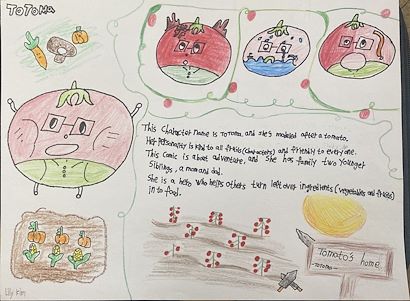 TOTOMA
This character name is TOTOMA. and she's modeled after a tomato.
Her personality is kind to all fruits (characters) and friendly to everyone.
This comic is about adventure, and she has family two younger
siblings, a mom and dad.
She is a hero who helps others turn leftover ingredients (vegetables and fruits)
in to food.
Tomato's home
-TOTOMA-
Lily Kim